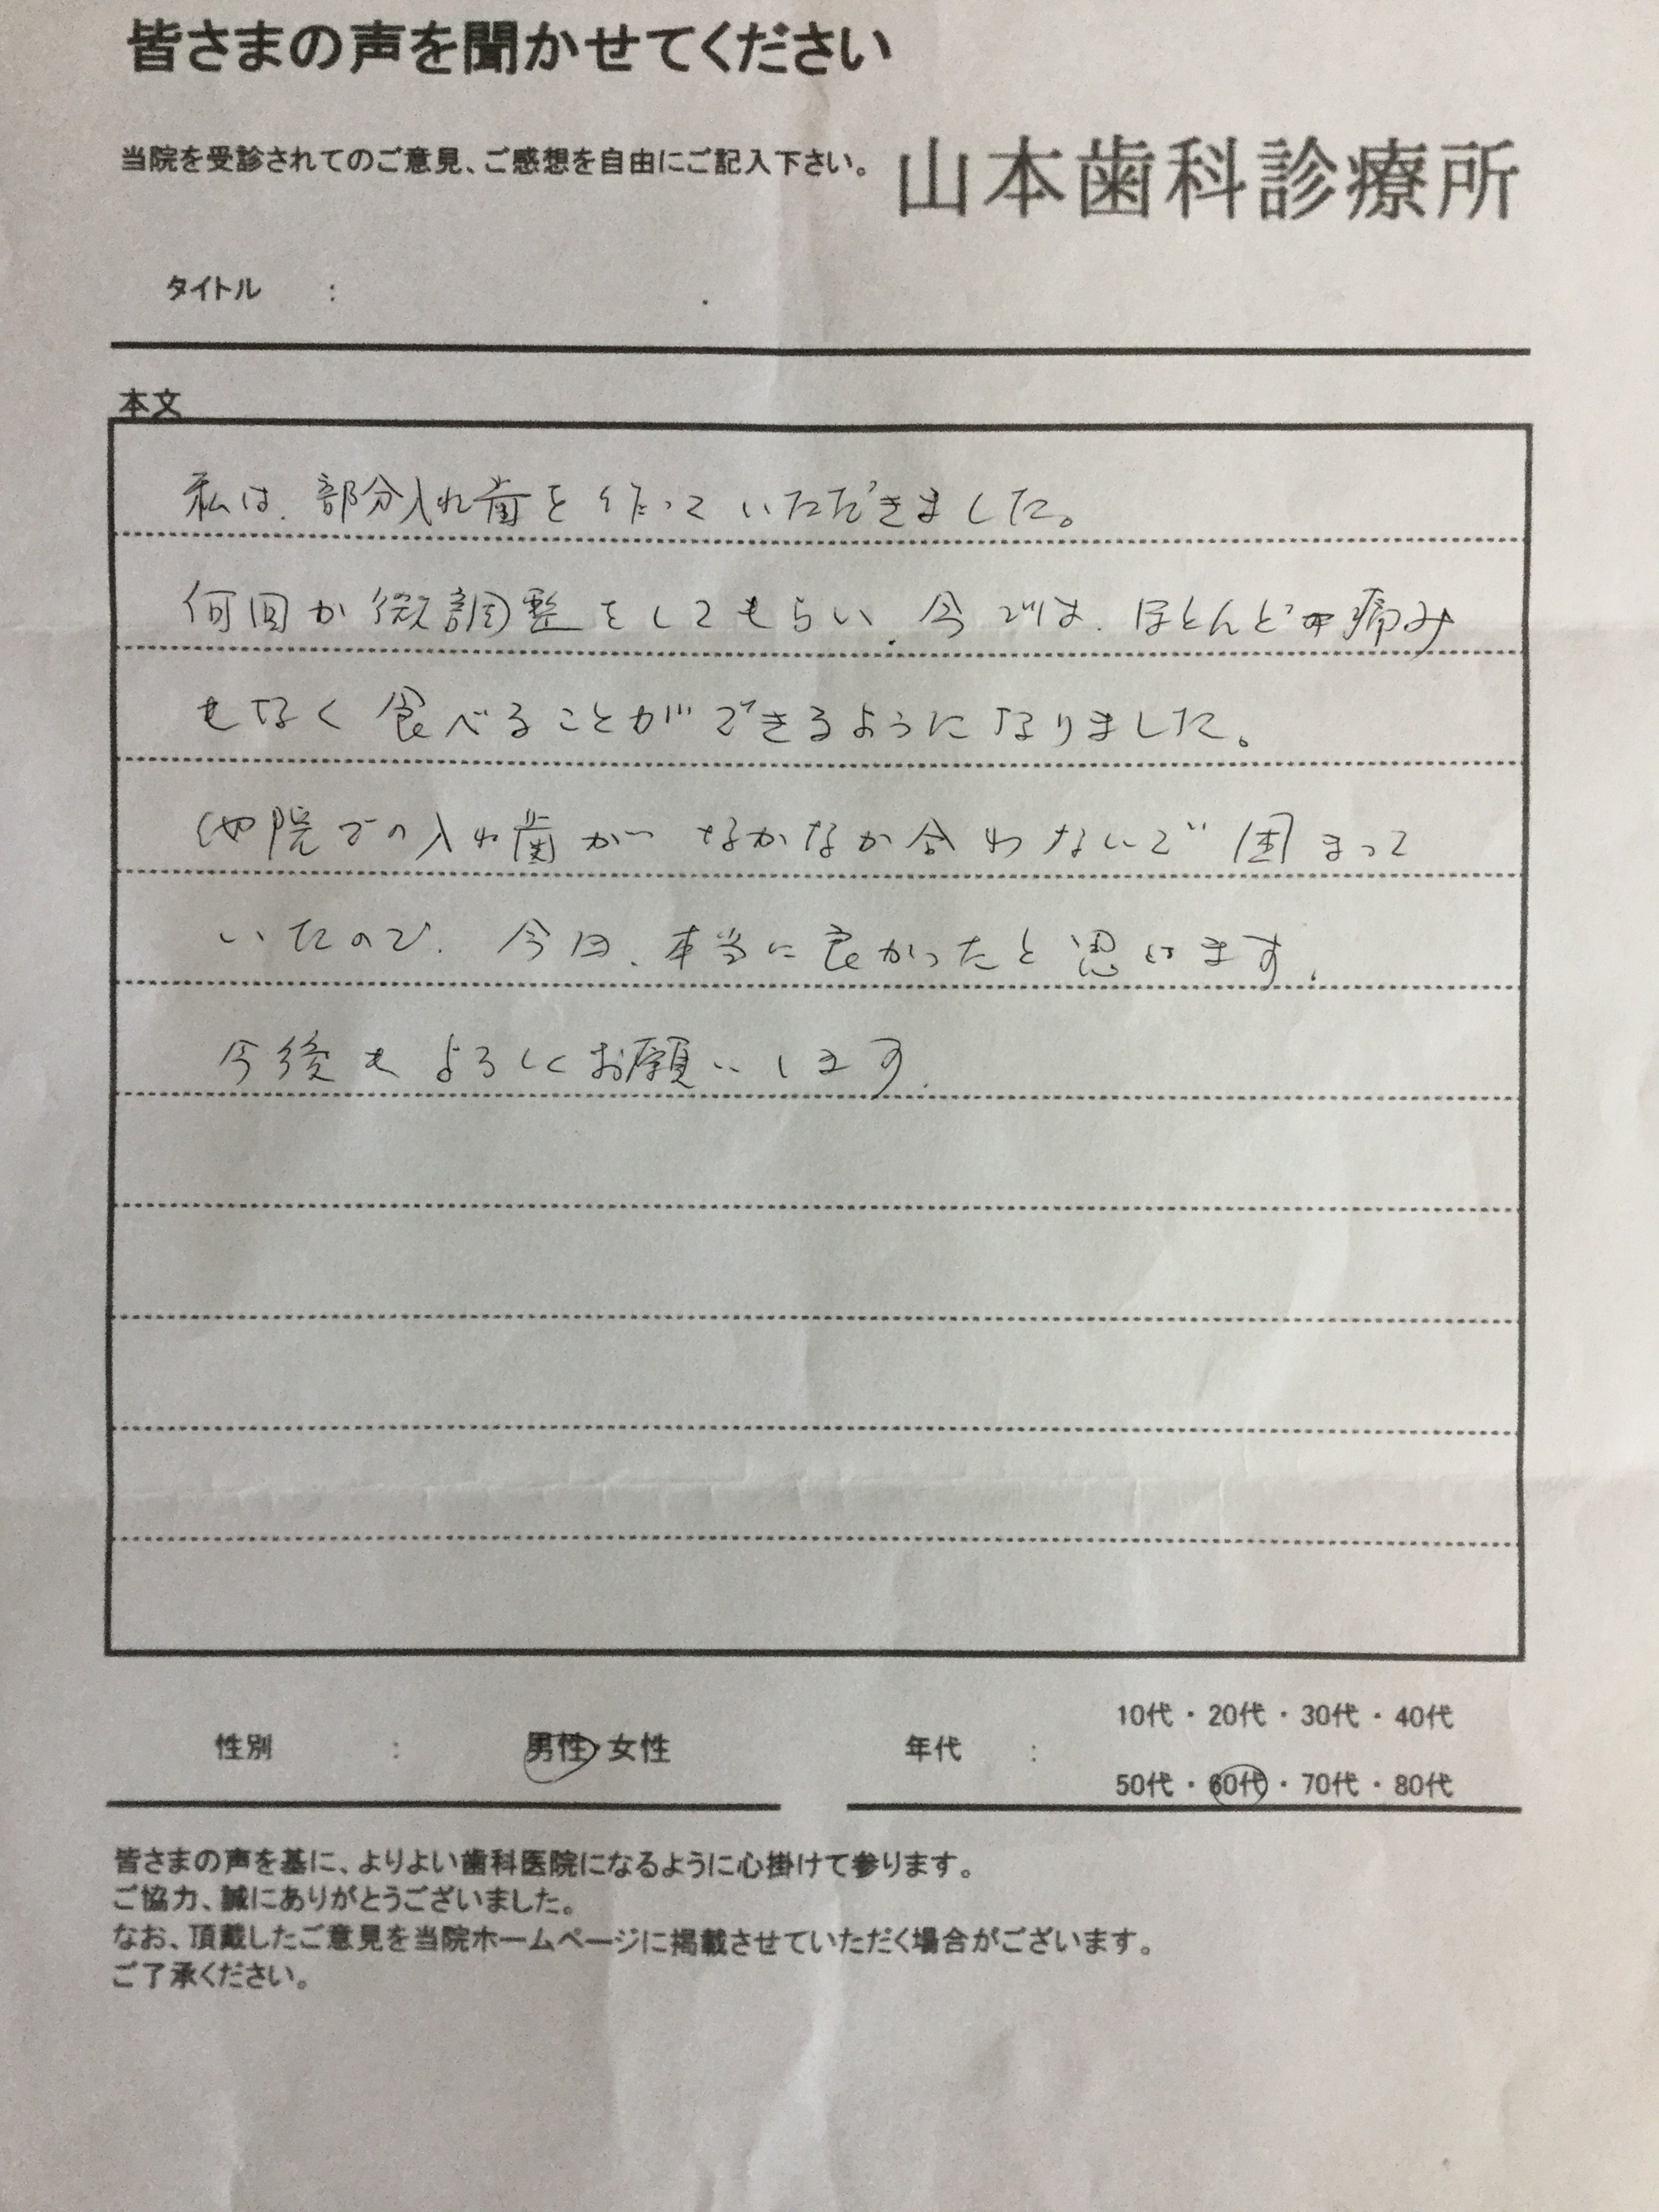 皆さまの声を聞かせてください
当院を受診されてのご意見、ご感想を自由にご記入下さい。 山本歯科診療所
タイトル :
本文
私は、部分入れ歯を作っていただきました。
何回か微調整をしてもらい、今では、ほとんど痛み
もなく食べることができるようになりました。
他院での入れ歯がなかなか合わないで困まって
いたので、今回、本当に良かったと思います。
今後もよろしくお願いします。
性別 : 男性・女性 年代 : 10代・20代・30代・40代
50代・60代・70代・80代
皆さまの声を基に、よりよい歯科医院になるように心掛けて参ります。
ご協力、誠にありがとうございました。
なお、頂戴したご意見を当院ホームページに掲載させていただく場合がございます。
ご了承ください。